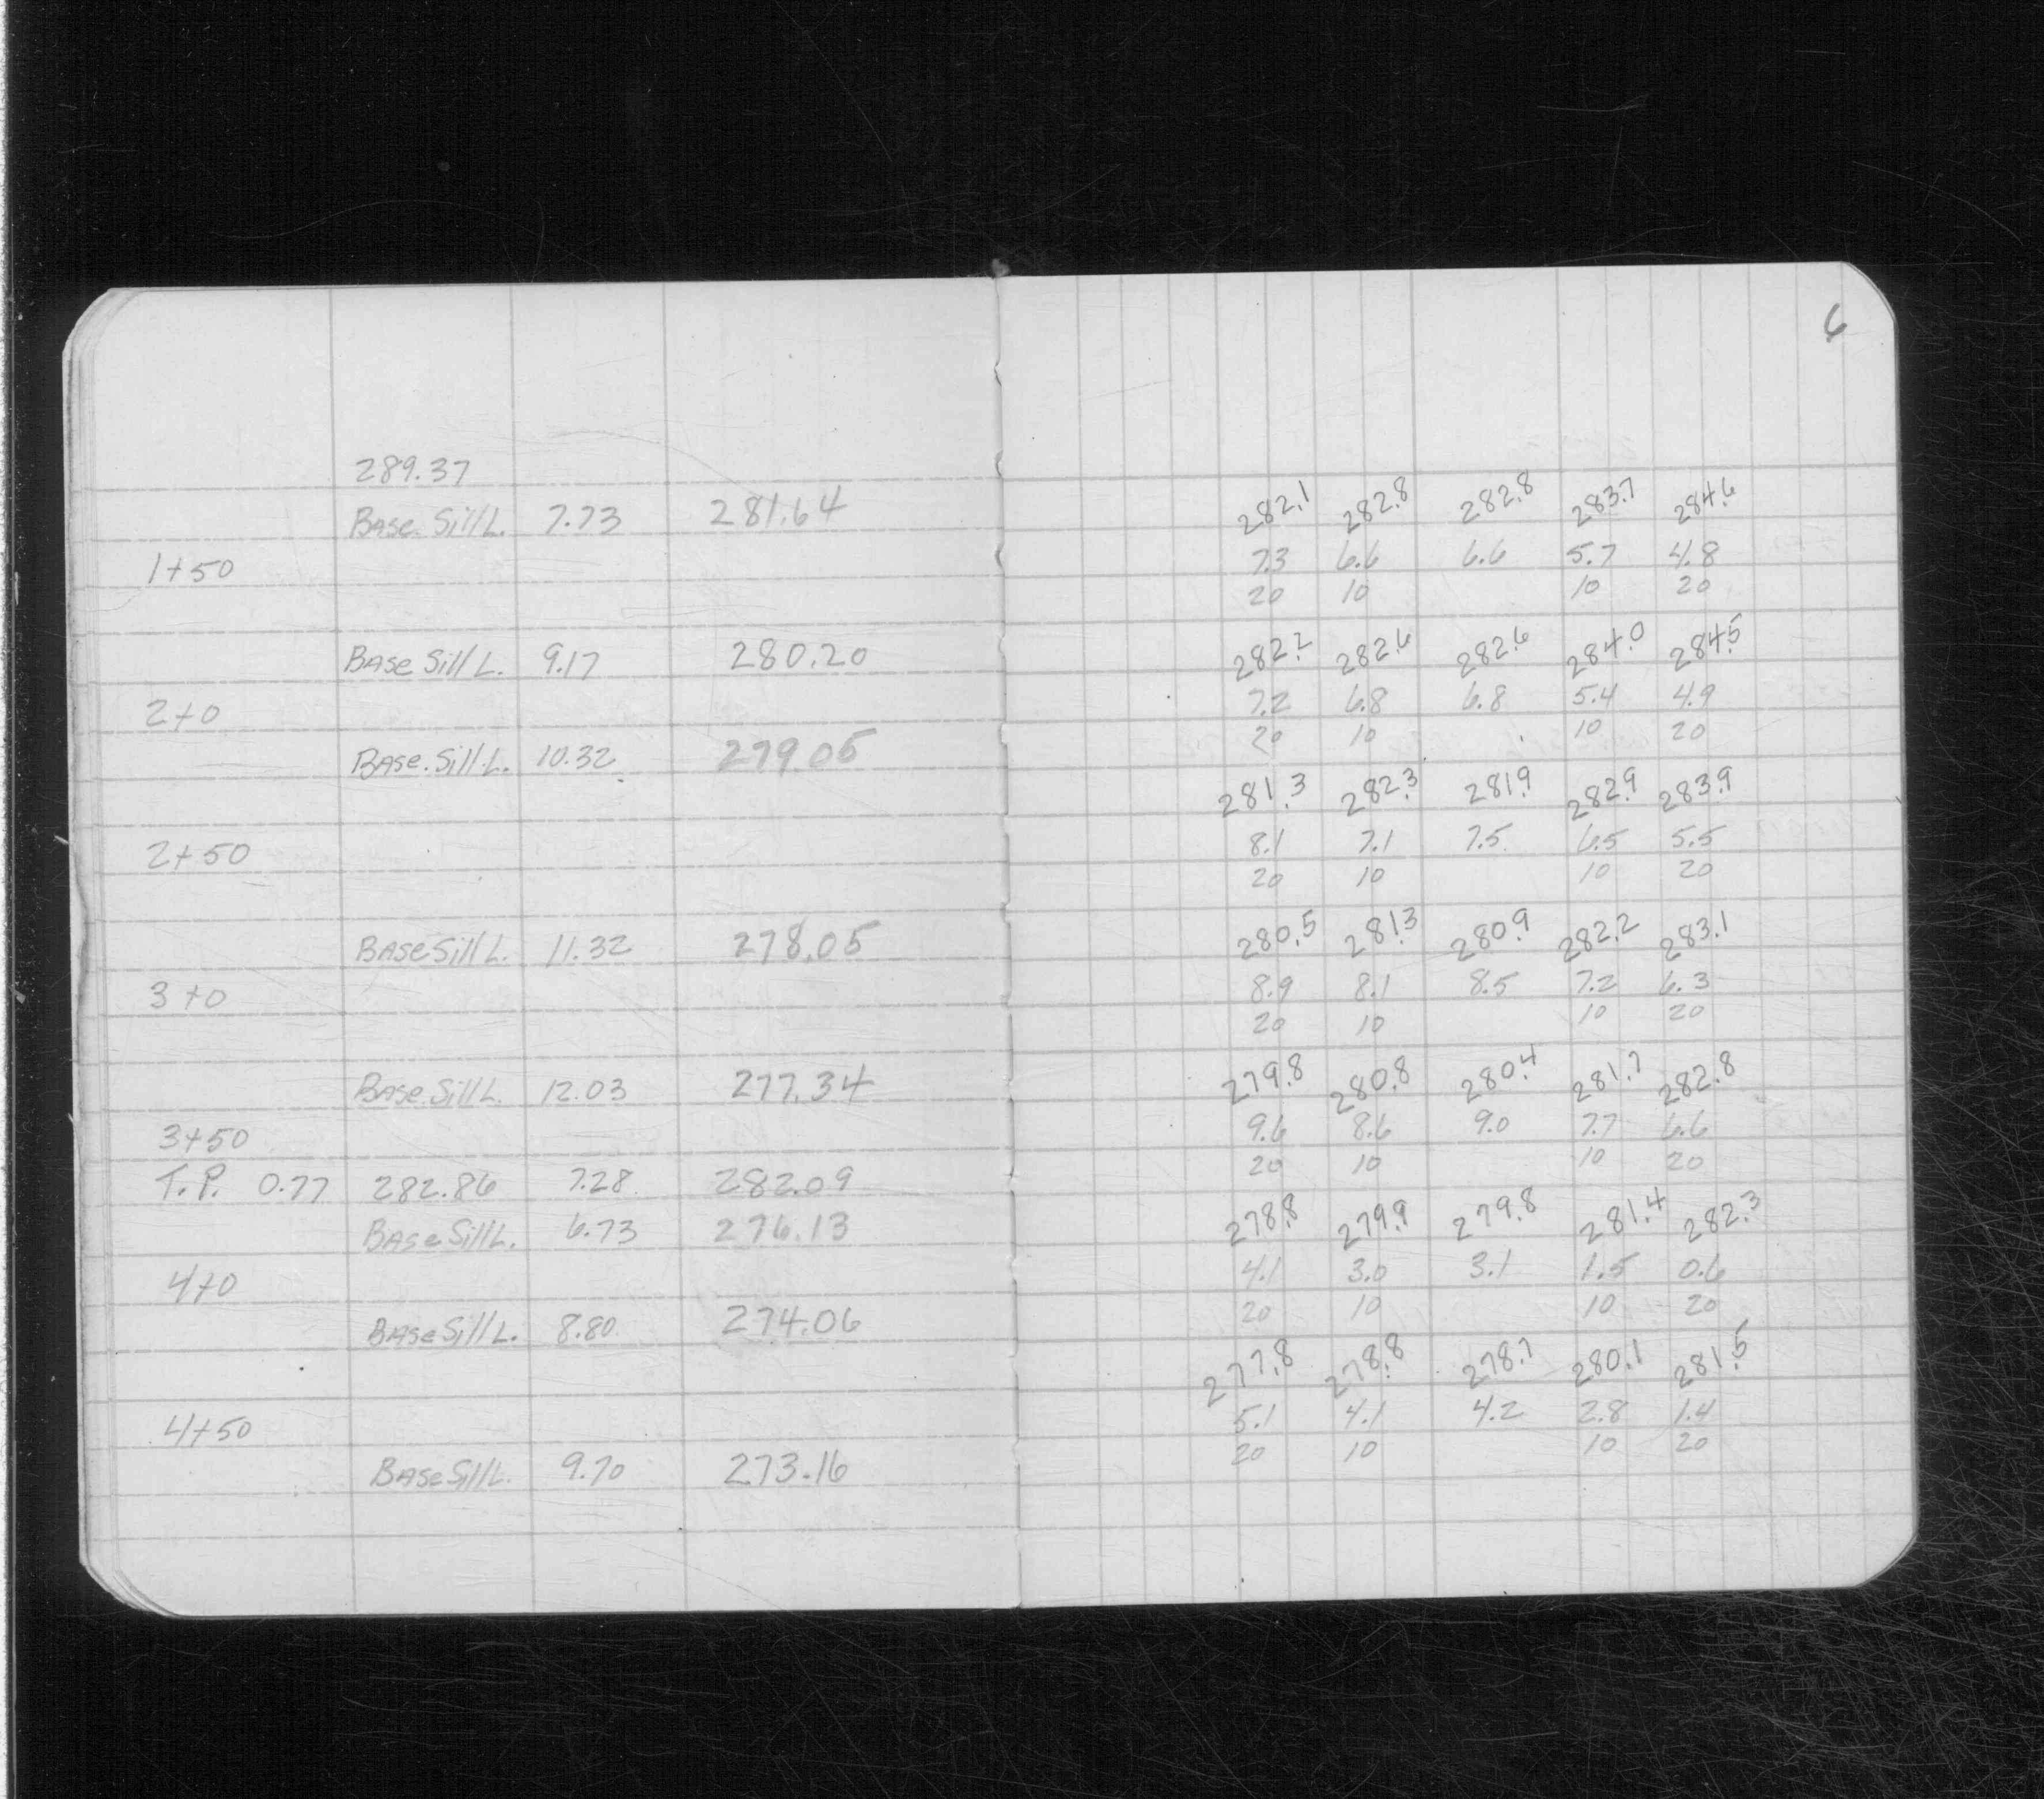 6
289.37
Base. Sill L. 7.73 281.64
1+50
Base Sill L. 9.17 280.20
2+0
Base. Sill L. 10.32 279.05
2+50
Base Sill L. 11.32 278.05
3+0
Base. Sill L. 12.03 277.34
3+50
T.P. 0.77 282.86 7.28 282.09
Base Sill L. 6.73 276.13
4+0
Base Sill L. 8.80 274.06
4+50
Base Sill L. 9.70 273.16
282.1 282.8 282.8 283.7 284.6
7.3 6.6 6.6 5.7 4.8
20 10 10 20
282.2 282.6 282.6 284.0 284.5
7.2 6.8 6.8 5.4 4.9
20 10 10 20
281.3 282.3 281.9 282.9 283.9
8.1 7.1 7.5 6.5 5.5
20 10 10 20
280.5 281.3 280.9 282.2 283.1
8.9 8.1 8.5 7.2 6.3
20 10 10 20
279.8 280.8 280.4 281.7 282.8
9.6 8.6 9.0 7.7 6.6
20 10 10 20
278.8 279.9 279.8 281.4 282.3
4.1 3.0 3.1 1.5 0.6
20 10 10 20
277.8 278.8 278.7 280.1 281.5
5.1 4.1 4.2 2.8 1.4
20 10 10 20